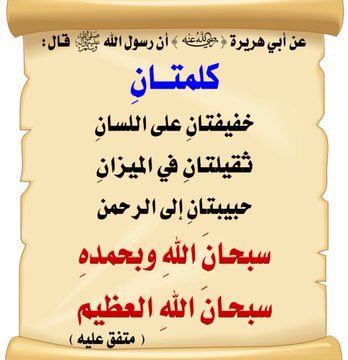 عن أبي هريرة ﴿رضي الله عنه﴾ أن رسول الله ﷺ قال :
كلمتـــانِ
خفيفتانِ على اللسانِ
ثقيلتانِ في الميزانِ
حبيبتانِ إلى الرحمن
سبحانَ اللهِ وبحمدهِ
سبحانَ اللهِ العظيم
( متفق عليه )